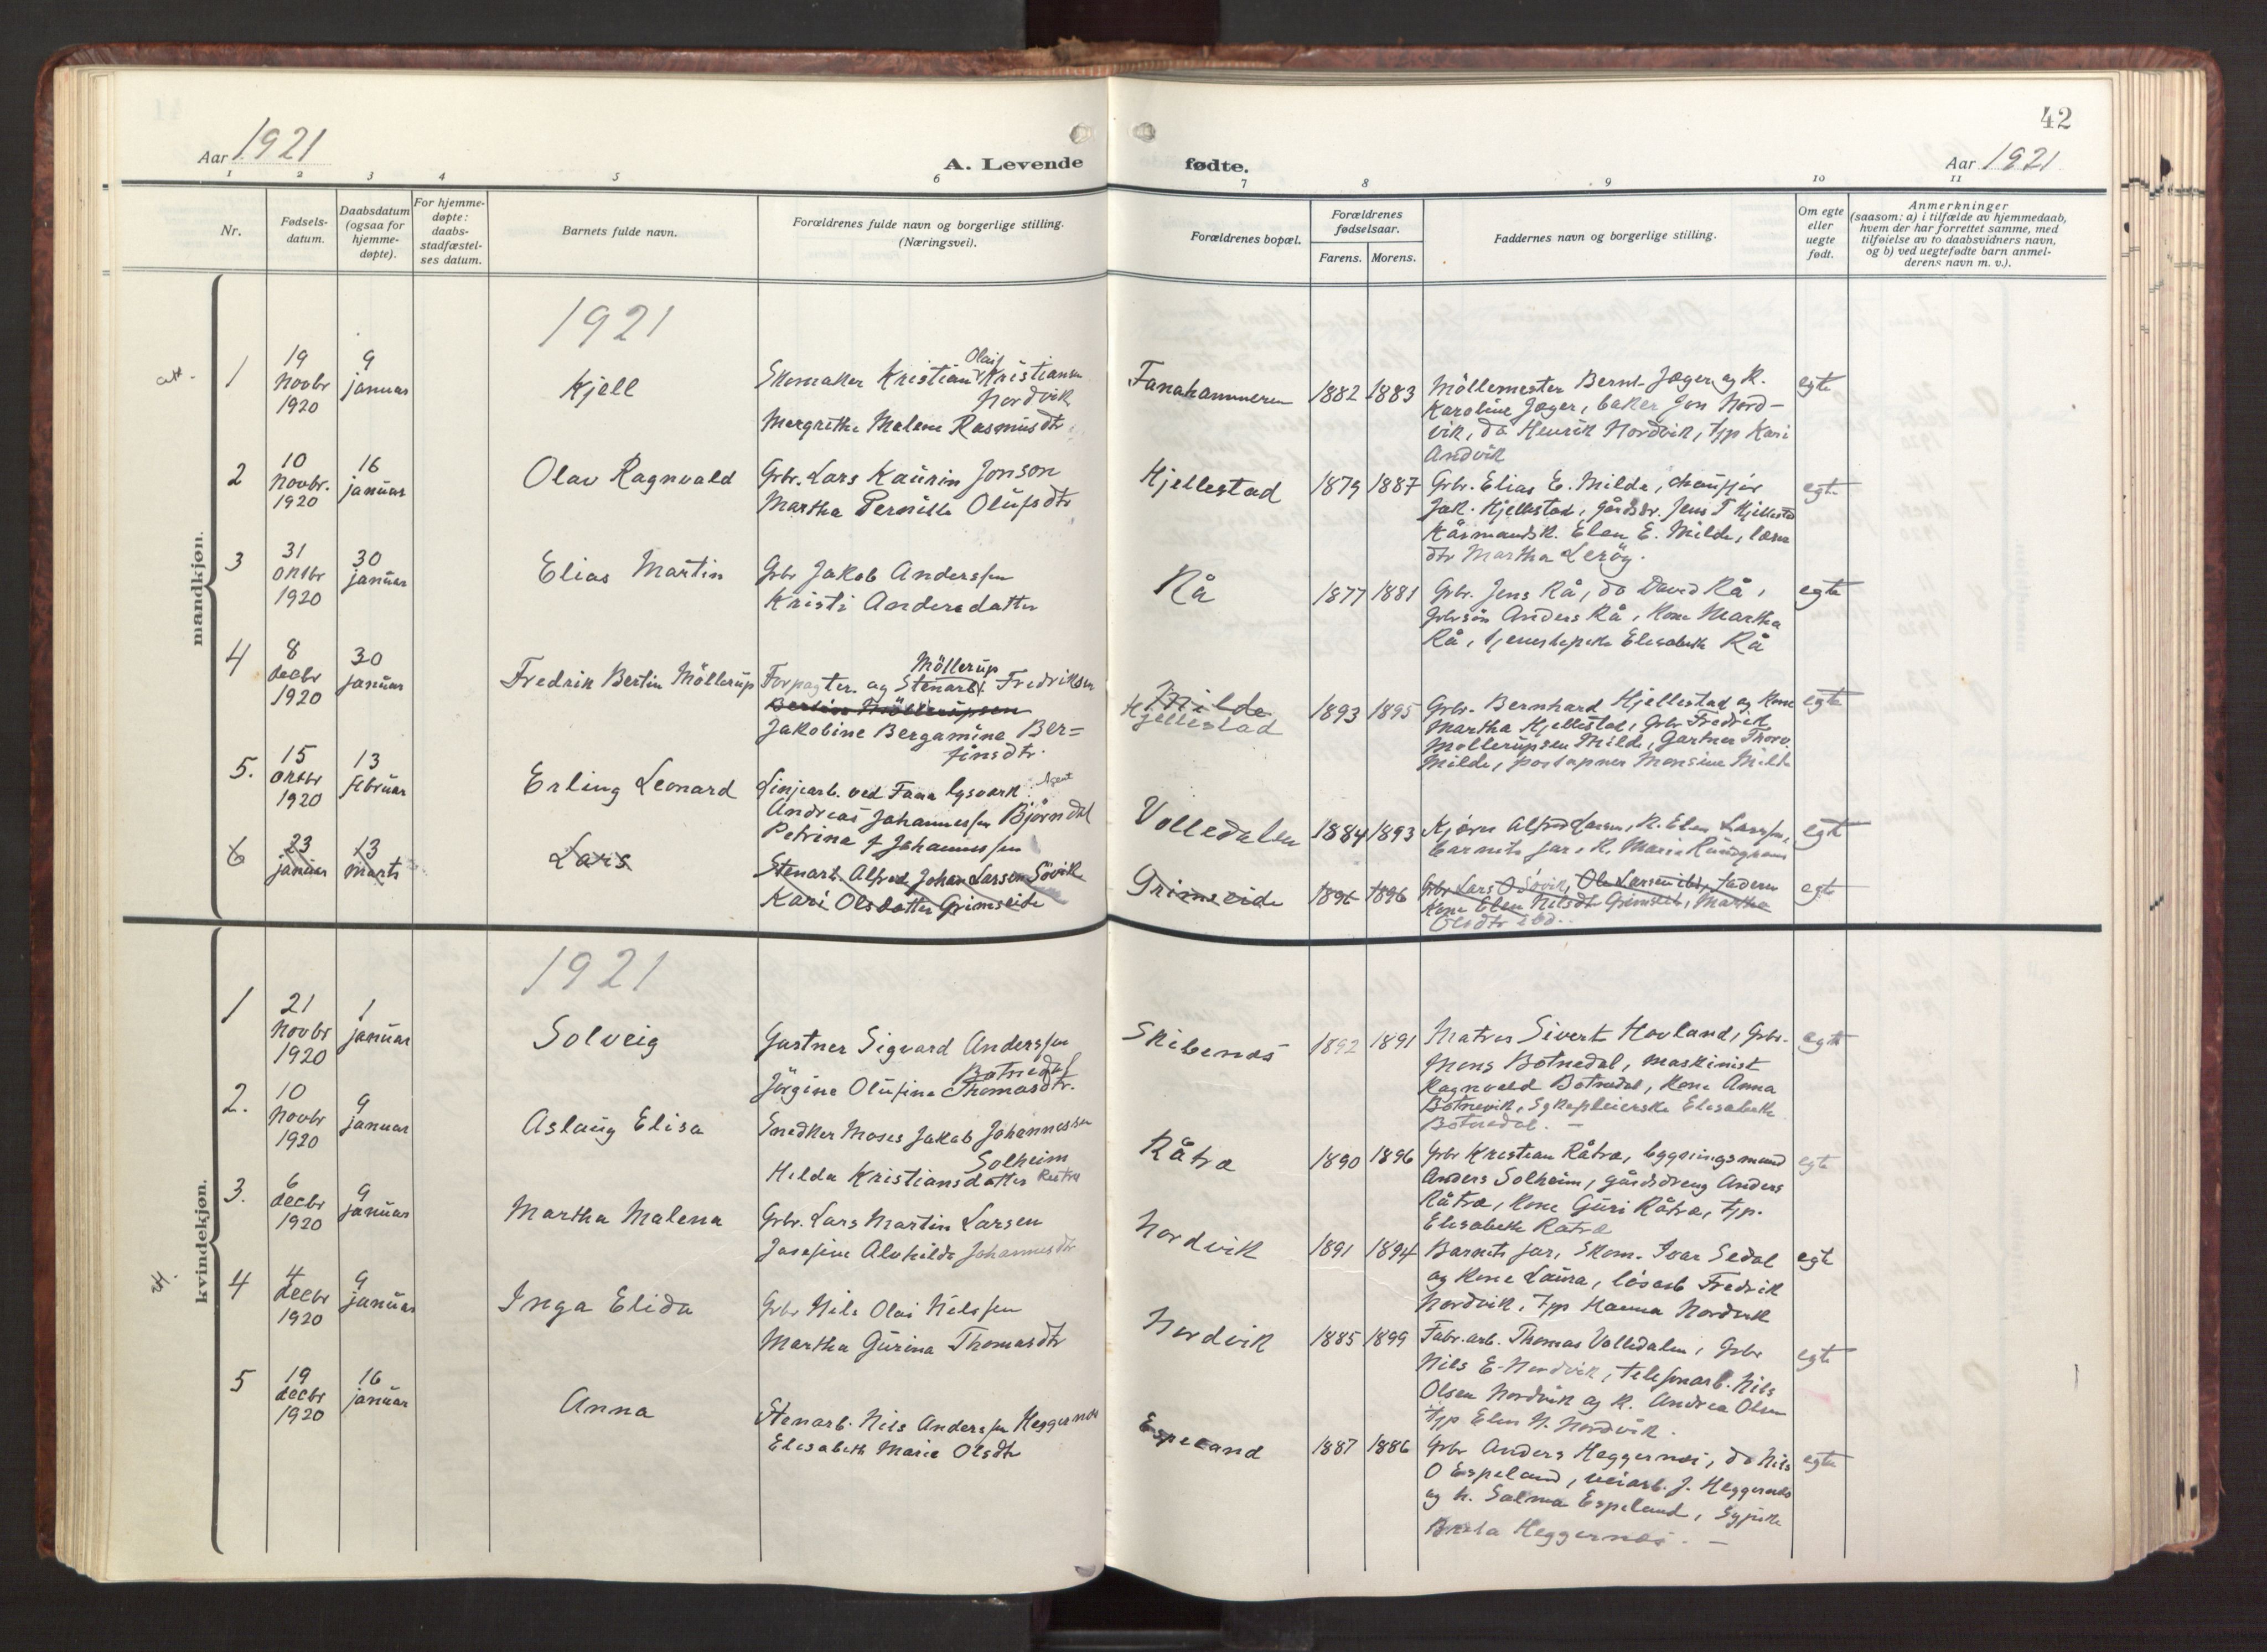 42
Aar 1921
A. Levende
fødte.
Aar 1921
1 2 3 4 5 6 7 8 9 10 11
Nr.
Fødsels-
datum.
Daabsdatum
(ogsaa for
hjemme-
døpte).
For hjemme-
døpte:
daabs-
stadfæstel-
ses datum.
Barnets fulde navn.
Forældrenes fulde navn og borgerlige stilling.
(Næringsvei).
Forældrenes bopæl.
Forældrenes
fødselsaar.
Farens. Morens.
Faddernes navn og borgerlige stilling.
Om egte
eller
uegte
født.
Anmerkninger
(saasom: a) i tilfælde av hjemmedaab,
hvem der har forrettet samme, med
tilføielse av to daabsvidners navn,
og b) ved uegtefødte barn anmel-
derens navn m. v.).
mandkjøn.
1921
1
19
Novbr
1920
9
januar
Kjell
Olai
Skomaker Kristian Kristiansen
Nordvik
Margrethe Malene Rasmusdtr
Fanahammeren
1882 1883
Möllemester Bernt Jæger og k.
Karoline Jæger, baker Jon Nord-
vik, do Henrik Nordvik, tjp Kari
Andvik
egte
2
10
Novbr.
1920
16
januar
Olav Ragnvald
Grbr. Lars Kaurin Jonson
Martha Pernille Olufsdtr
Hjellestad
1879 1887
Grbr. Elias E. Milde, chaufför
Jak. Hjellestad, gårdsdr. Jens T Hjellestad
Kåsmandsk. Elen E. Milde, lærer
dtr Martha Leröy.
egte
3
31
oktbr
1920
30
januar
Elias Martin
Grbr Jakob Anderssen
Kristi Andersdatter
Rå
1877 1881
Grbr. Jens Rå, do David Rå,
Grbrsön Anders Rå, Kone Martha
Rå, tjenestepike Elisabeth Rå
egte
4
8
decbr
1920
30
januar
Fredrik Bertin Möllerup
Möllerup
Forpagter og Stenarb. Fredriksen
Bertin Möllerupsen
Jakobine Bergamine Ber=
tinsdtr.
Milde
Hjellestad
1893 1895
Grbr. Bernhard Hjellestad og Kone
Martha Hjellestad, Grbr Fredrik
Möllerupsen Milde, Gartner Thorv.
Milde, postapner Monsine Milde
egte
5.
15
oktbr
1920
13
februar
Erling Leonard
Linjearb. ved Fana lysverk Agent
Andreas Johannessen Björndal
Petrina f Johannessen
Volledalen
1884 1893
Kjörer Alfred Larsen, K. Elen Larssen,
barnets far, K. Marie
egte
6
23
januar
13
Marts
Lars
Stenarb. Alfred Johan Larsen Sövik
Kari Olsdatter Grimseide
Grimseide
1896 1896
Grbr Lars O Sövik, Ole Larsen ibd, faderen
Kone Elen Nilsdtr Grimseid, Martha
Olsdtr ibd.
egte
kvindekjøn.
1921
1
21
Novbr
1920
1
januar
Solveig
Gartner Sigvard Anderssen
Botnedal
Jörgine Olufine Thomasdtr.
Skibenes
1892 1891
Matros Sivert Hovland, Grbr.
Mons Botnedal, maskinist
Ragnvald Botnedal, Kone Anna
Botnevik, Sykepleierske Elisabeth
Botnedal. -
egte
2.
10
Novbr
1920
9
januar
Aslaug Elisa
Snedker Moses Jakob Johannessen
Solheim
Hilda Kristiansdatter Raatra
Råtra
1890 1896
Grbr Kristian Råtra, bygningsmand
Anders Solheim, gårdsdreng Anders
Råtra, Kone Guri Råtra, tjp.
Elisabeth Råtra
egte
3.
6
decbr
1920
9
januar
Martha Malena
Grbr. Lars Martin Larsen
Josefine Alvhilda Johannesdtr
Nordvik
1891 1894
Barnets far, Skom. Ivar Sedal
og Kone Laura, lösarb Fredrik
Nordvik, tjp Hanna Nordvik
egte
4
4
decbr
1920
9
januar
Inga Elida
Grbr Nils Olai Nilssen
Martha Gurina Thomasdtr
Nordvik
1885 1899
Fabr.arb. Thomas Volledalen, Grbr
Nils E. Nordvik, telefonarb. Nils
Olsen Nordvik og k. Andrea Olsen
tjp Elen N. Nordvik.
egte
5
19
decbr
1920
16
januar
Anna
Stenarb. Nils Anderssen Heggernes
Elisabeth Marie Olsdtr
Espeland
1887 1886
Grbr Anders Heggernes, do Nils
O Espeland, veiarb. J. Heggernes
og k. Salma Espeland, Sypike
Brita Heggernes. -
egte